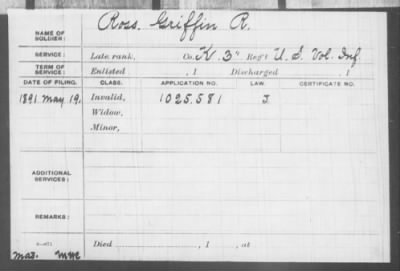 Ross. Griffin R.
NAME OF SOLDIER:
SERVICE: Late rank, Co. K. 3" Reg't U. S. Vol. Inf.
TERM OF SERVICE: Enlisted , 1 Discharged , 1
DATE OF FILING. CLASS. APPLICATION NO. LAW. CERTIFICATE NO.
1891. May. 19. Invalid, 1025.581 J.
Widow,
Minor,
ADDITIONAL SERVICES:
REMARKS:
Died , 1 , at